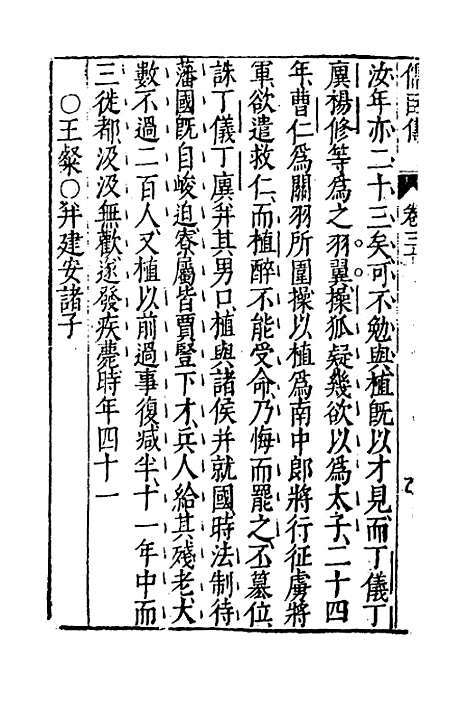 儒函傳 卷三十
汝年亦二十三矣可不勉與植旣以才見而丁儀丁
廙楊修等爲之羽翼操狐疑幾欲以爲太子二十四
年曹仁爲關羽所圍操以植爲南中郎將行征虜將
軍欲遣救仁而植醉不能受命乃悔而罷之丕墓位
誅丁儀丁廙幷其男口植與諸侯幷就國時法制待
藩國旣自峻迫寮屬皆賈豎下才兵人給其殘老大
數不過二百人又植以前過事復减半十一年中而
三徙都汲汲無歡遂發疾薨時年四十一
○王粲○幷建安諸子